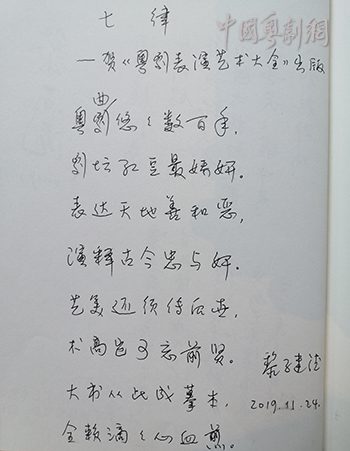 中國粵劇網
七律
—贺《粤剧表演艺术大全》出版
曲
粤剧悠々数百年,
剧坛红豆最妍。
表达天地善和恶,
演释古今忠与奸.
艺美还须后世,
术高岂可忘前贤。
大书从此成摹本,
全赖滴々心血煎。
黎建
2019.11.24.